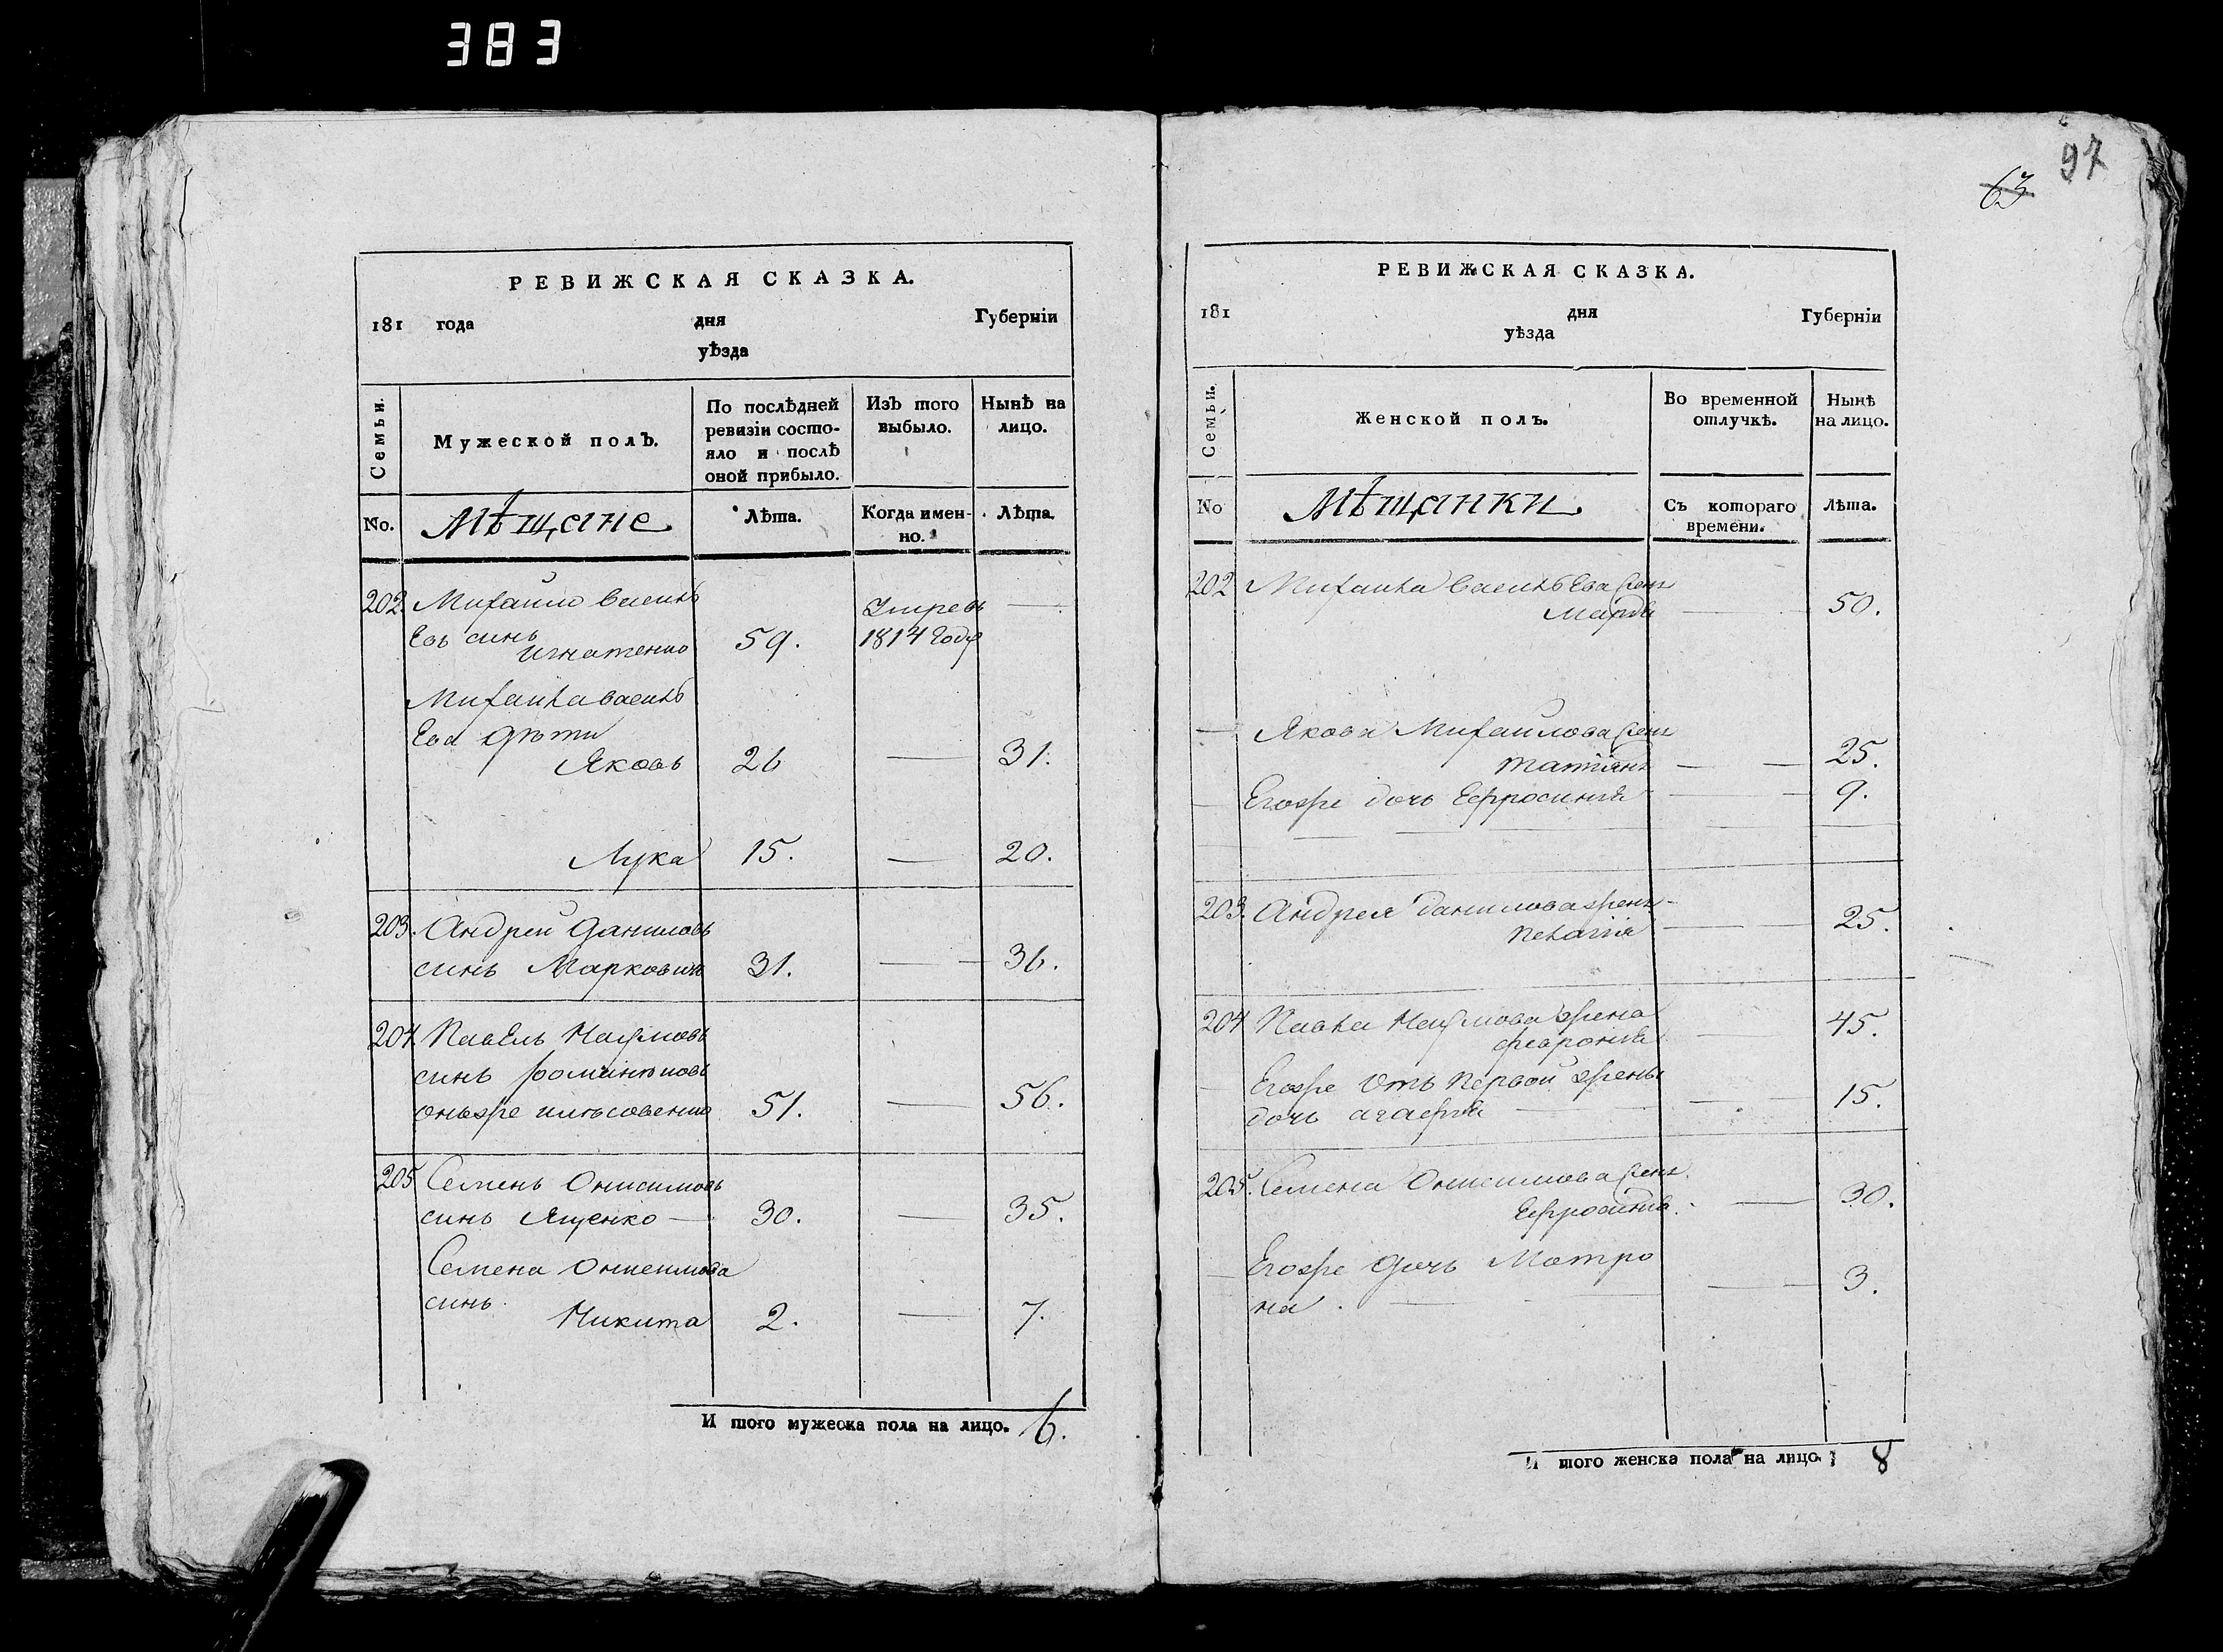 383
97
63
РЕВИЖСКАЯ СКАЗКА.
181 года дня Губерніи
уѣзда
Семьи.
Мужеской полъ.
По послѣдней ревизіи состояло и послѣ оной прибыло.
Изъ того выбыло.
Нынѣ на лицо.
No.
Мѣщане
Лѣта.
Когда именно.
Лѣта.
202. Михайло Василь
евъ синъ
Игнатенко 59. Умревъ 1814 Году —
Михайла Василь
ева Дѣти
Яковъ 26 — 31.
Лука 15. — 20.
203. Андрей Даниловъ
синъ Маркович 31. — 36.
204. Павелъ Наумовъ
синъ
онъже 51. — 56.
205 Семенъ Онисимовъ
синъ Ященко — 30. — 35.
Семена Онисимова
синъ.
Никита 2. — 7.
И того мужеска пола на лицо. 6.
РЕВИЖСКАЯ СКАЗКА.
181 дня Губерніи
уѣзда
Семьи.
Женской полъ.
Во временной отлучкѣ.
Нынѣ на лицо.
No
Мѣщанки.
Съ котораго времени.
Лѣта.
202 Михайла Василь Ева жена
Марфа — 50.
— Якова Михайлова жена
Татіяна — 25.
Егоже дочь Ефросинія — 9.
203. Андрея Данилова жена
Пелагія — 25.
204 Павла Наумова жена
феаронія — 45.
Егоже отъ первой жены
дочь агафія — 15.
205. Семена Онисимова жена
Ефросинія. — 30.
Егоже Дочь Матро
на. — 3.
И того женска пола на лицо. 8